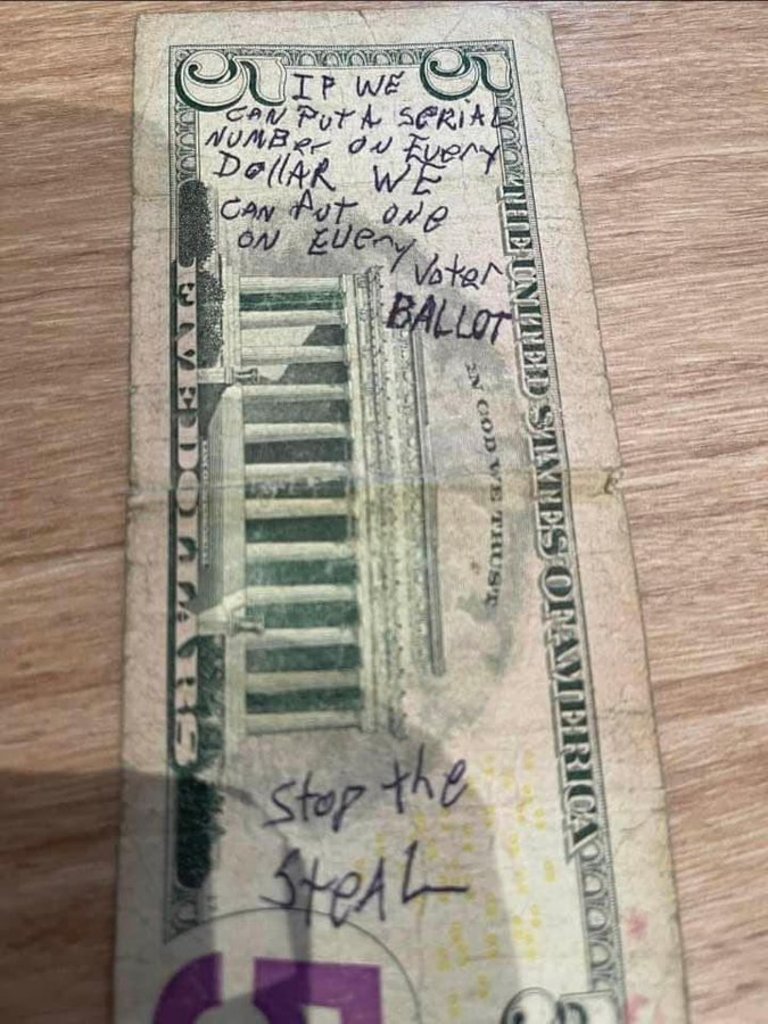 IF WE
CAN PUT A SERIAL
NUMBER ON EVERY
DollAR WE
CAN PUT ONE
ON EVERY
Voter
BALLOT
Stop the
SteAL
THE UNITED STATES OF AMERICA
IN GOD WE TRUST
FIVE DOLLARS
5
5
5